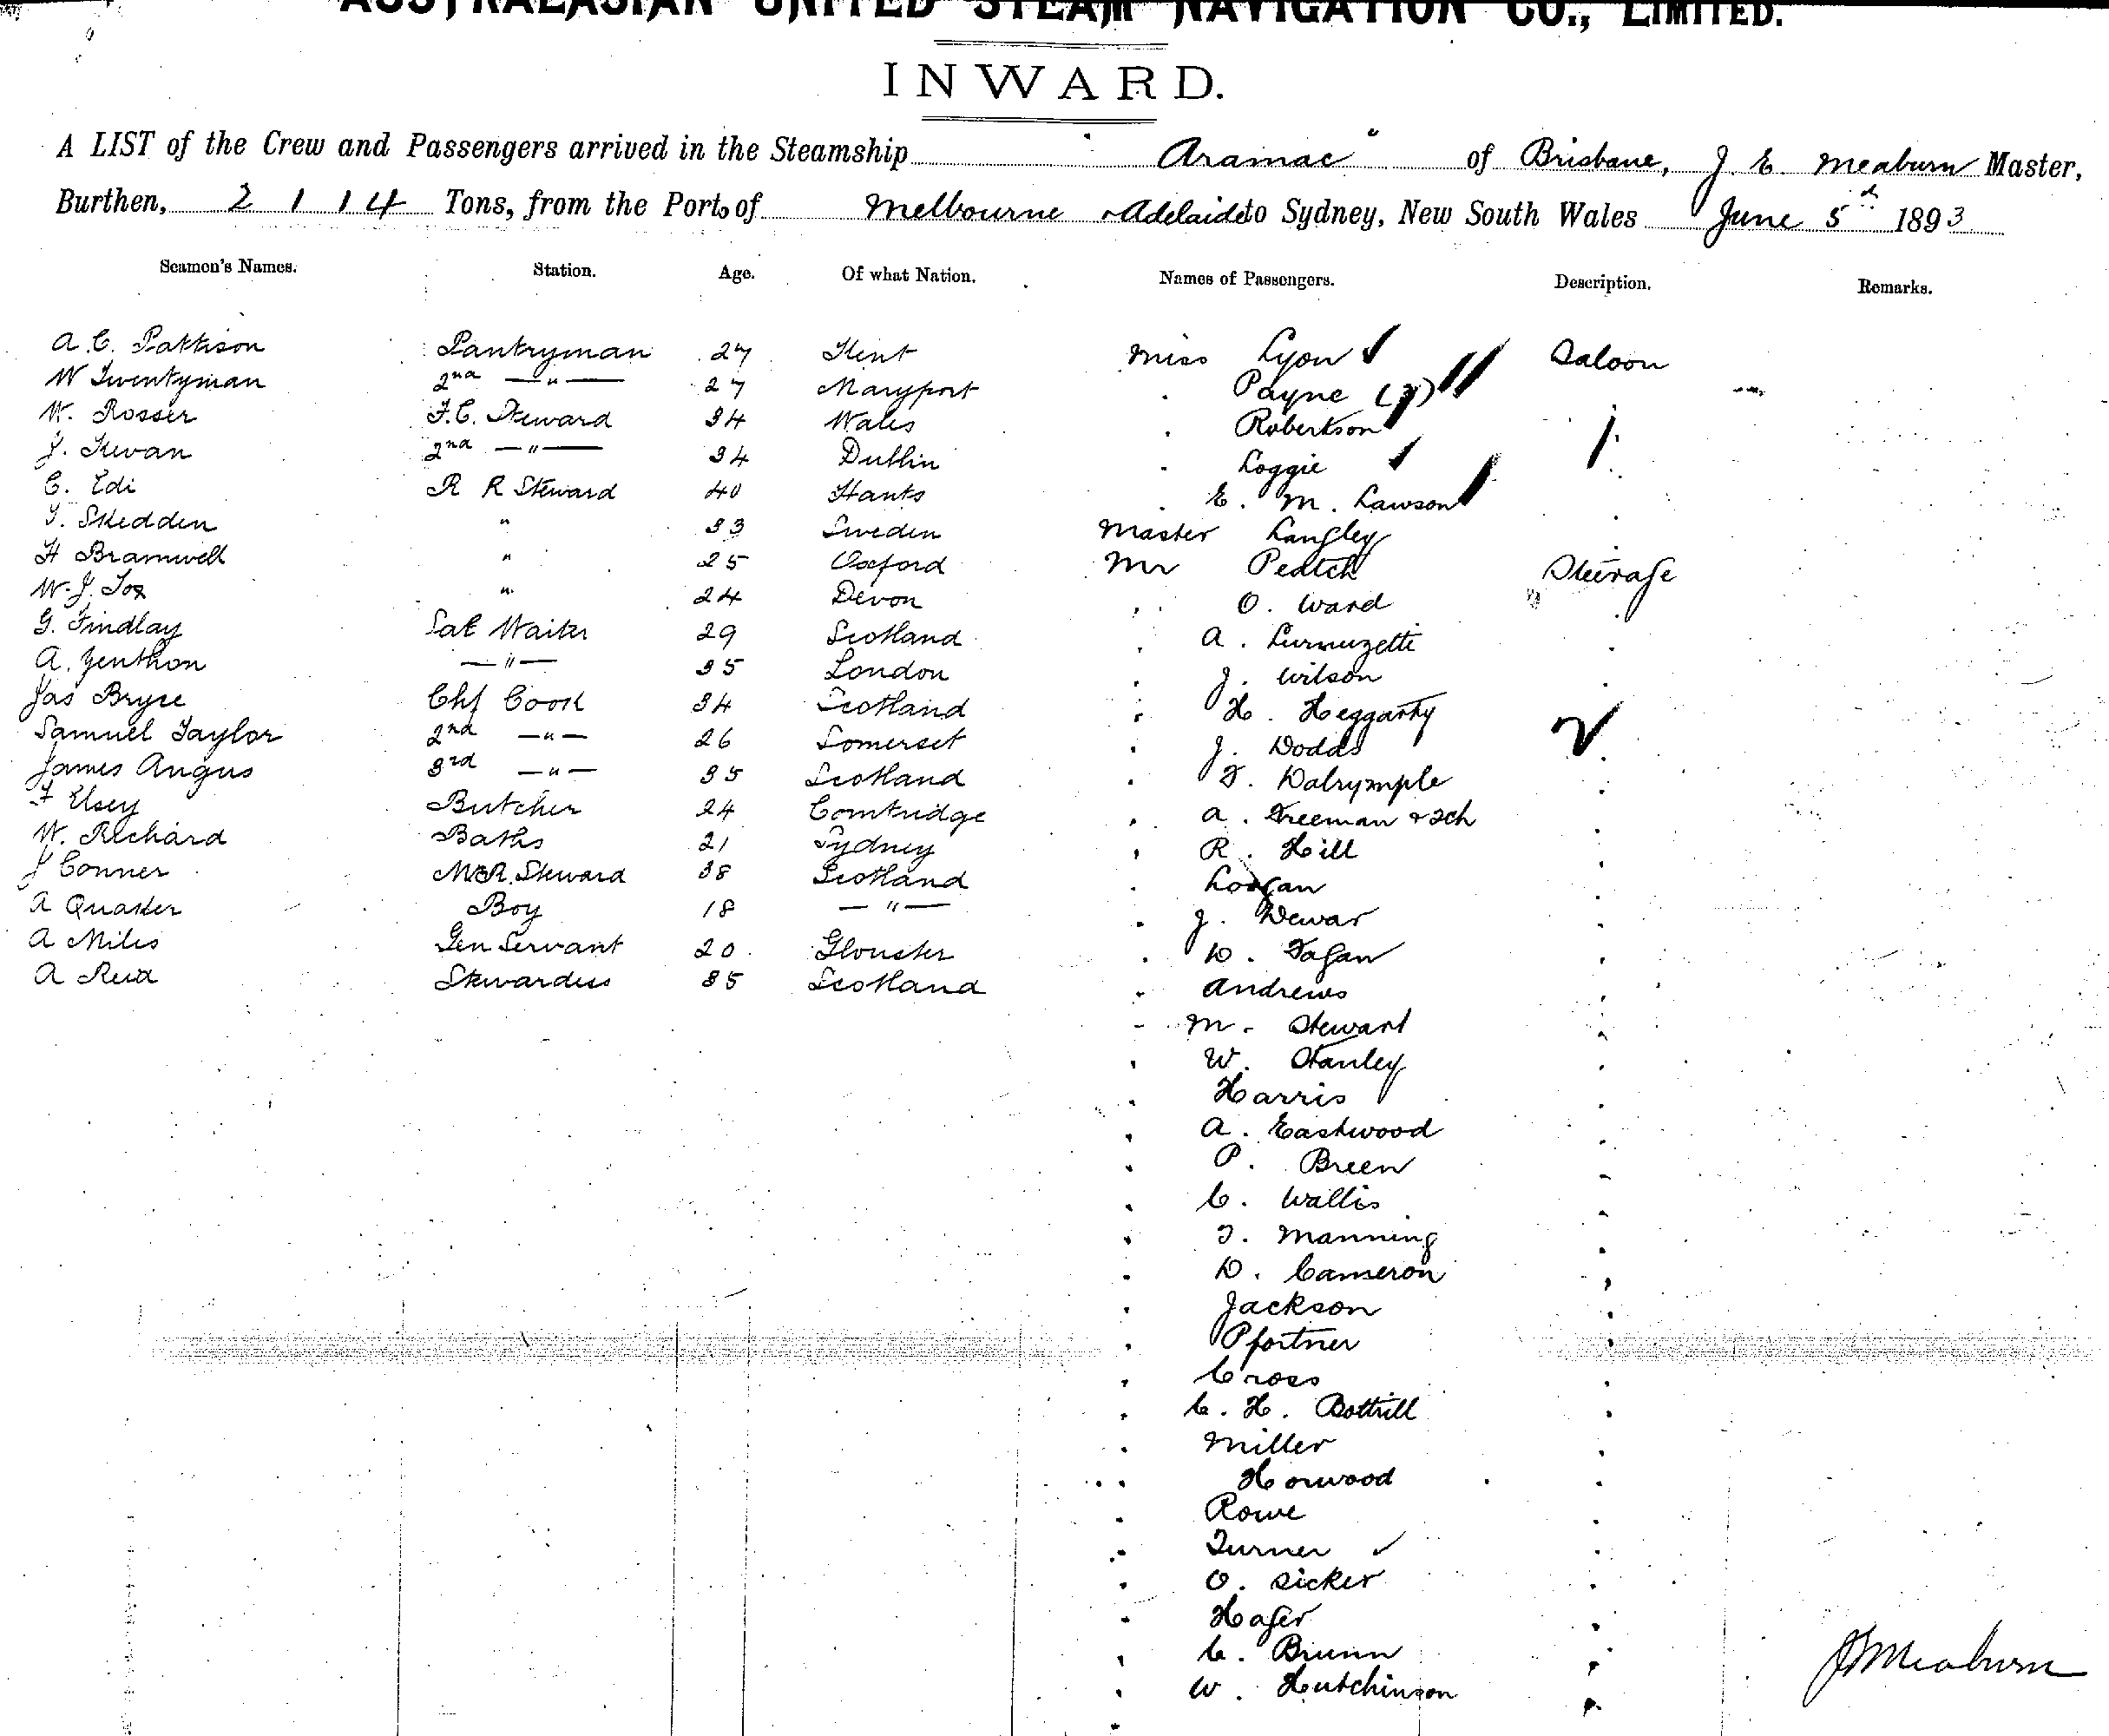 AUSTRALASIAN UNITED STEAM NAVIGATION CO., LIMITED.
INWARD.
A LIST of the Crew and Passengers arrived in the Steamship "Aramac" of Brisbane, J. E. Meaburn Master,
Burthen, 2114 Tons, from the Ports of Melbourne & Adelaide to Sydney, New South Wales June 5th 1893
Seamen's Names. Station. Age. Of what Nation. Names of Passengers. Description. Remarks.
A. C. Pattison Pantryman 27 Kent Miss Lyon Saloon
W Twentyman 2nd —"— 27 Maryport . Payne
W. Rosser F.C. Steward 34 Wales . Robertson
J. Kevan 2nd —"— 34 Dublin . Loggie
C. Edi R R Steward 40 Hants E. M. Lawson
T. Skedden " 33 Sweden Master Langley
H Bramwell " 25 Oxford Mr Peatch Steerage
W. J. Fox " 24 Devon O. Ward
G. Findlay Sal Waiter 29 Scotland A.
A. Zenthon —"— 35 London J. Wilson
Jas Bryce Chf Cook 34 Scotland H. Heggarty
Samuel Taylor 2nd —"— 26 Somerset J. Dodds
James Angus 3rd —"— 35 Scotland T. Dalrymple
F Elsey Butcher 24 Comtridge A. Freeman & 2ch
W. Richard Baths 21 Sydney R. Hill
J Conner M.R. Steward 38 Scotland Loogan
A Quaster Boy 18 —"— J. Dewar
A Miles Gen Servant 20 Glouster D. Fagan
A Reid Stewardess 35 Scotland Andrews
M. Stewart
W. Stanley
Harris
A. Eastwood
P. Breen
C. Wallis
T. Manning
D. Cameron
Jackson
Pfortner
Cross
C. H. Bottrill
Miller
Horwood
Rowe
Turner
O. Sicker
Hager
C. Brunn
W. Hutchinson
J E Meaburn